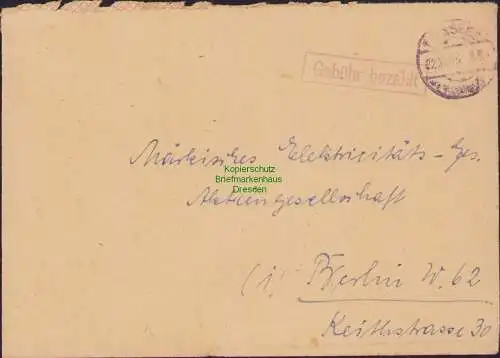 Gebühr bezahlt
Märkisches Elektricitäts-Ges.
Kopierschutz
Briefmarkenhaus
Dresden
Aktiengesellschaft
(1) Berlin W. 62
Keithstrasse 30